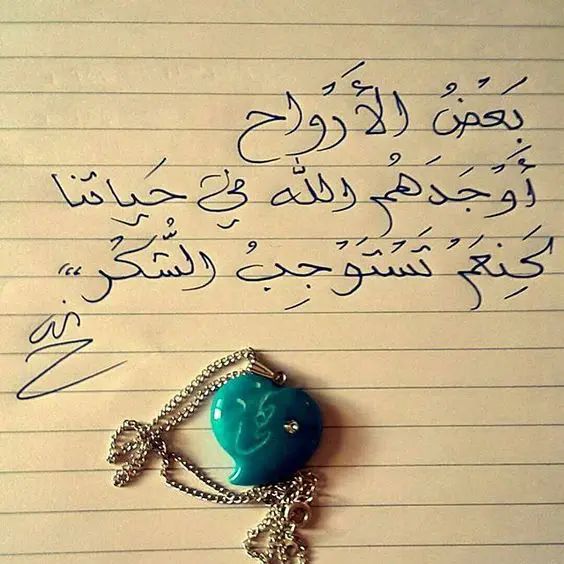 بَعْضُ الأَرْوَاح
أَوْجَدَهُم الله في حَياتنا
كَنِعَمْ تَسْتَوْجِبُ الشُّكَرْ ،،